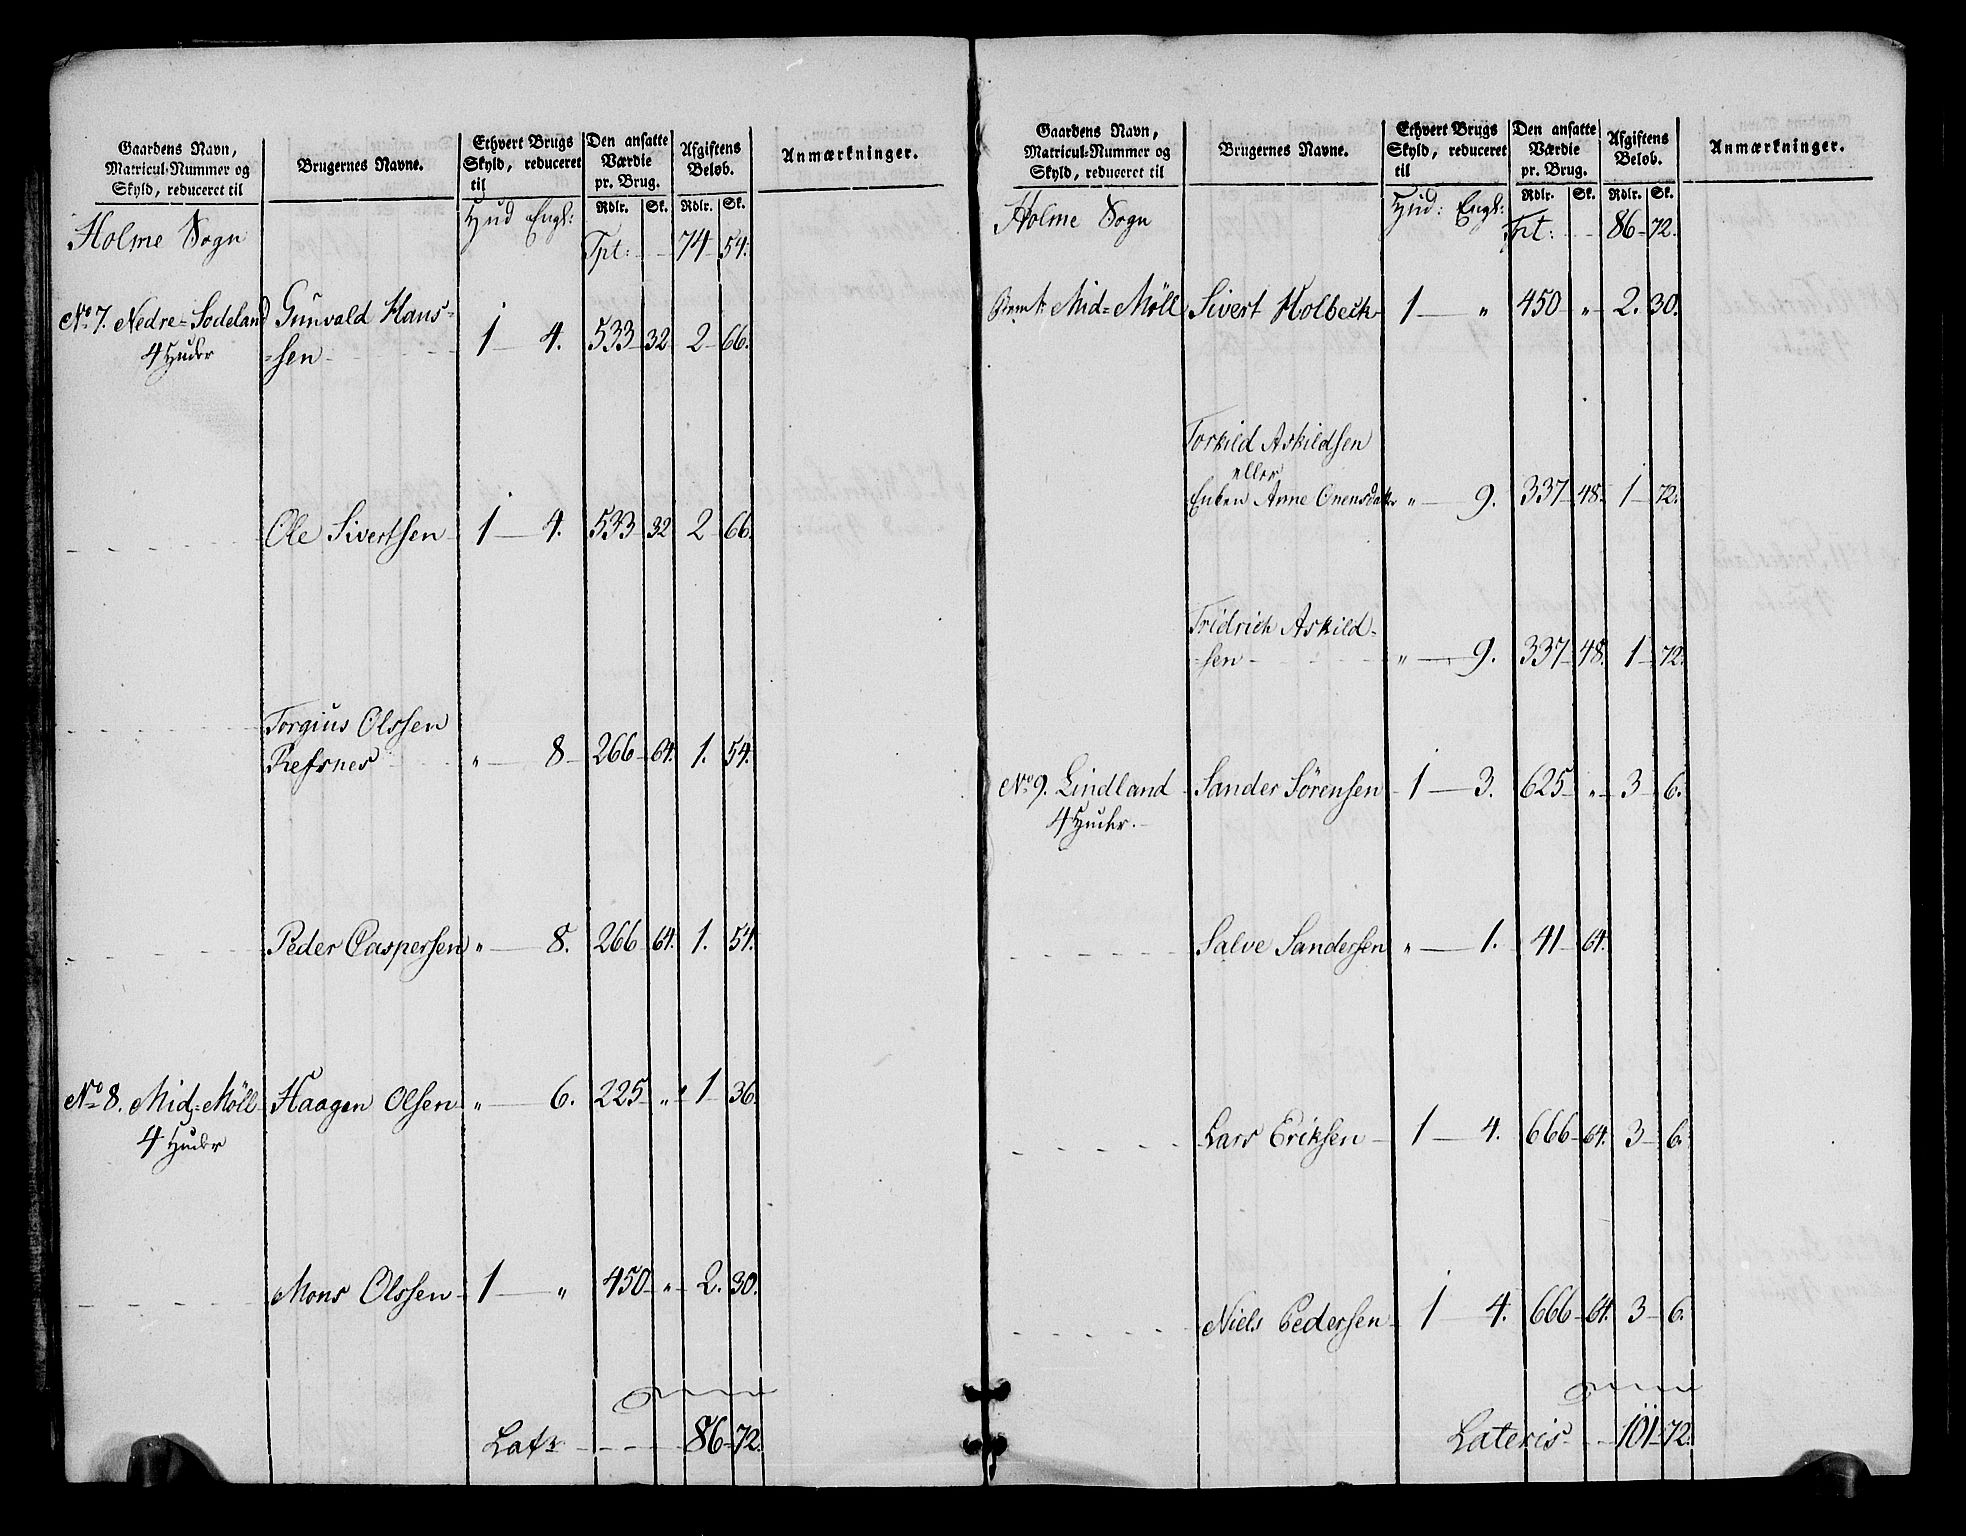 Gaardens Navn, Matricul-Nummer og Skyld, reduceret til | Brugernes Navne. | Ethvert Brugs Skyld, reduceret til | Den ansatte Værdie pr. Brug. | Afgiftens Beløb. | Anmærkninger.
Rdlr. | Sk. | Rdlr. | Sk.
Holme Sogn | Hud Engl: | Tpt: - - 74 - 54.
No 7. Nedre-Sodeland | Gunvald Hans-
4 Huder | -sen | 1 - 4. | 533 - 32 | 2 - 66.
Ole Sivertsen | 1 - 4. | 533 - 32 | 2 - 66.
Torgius Olssen
Refsnes | " - 8 | 266 - 64. | 1. 54.
Peder Caspersen | " - 8. | 266 64. | 1. 54.
No 8. Mid-Möll | Haagen Olsen | " - 6. | 225 " | 1 - 36.
4 Huder
Mons Olssen | 1 - " | 450 - " | 2. 30.
Latr - - - 86 - 72.
Gaardens Navn, Matricul-Nummer og Skyld, reduceret til | Brugernes Navne. | Ethvert Brugs Skyld, reduceret til | Den ansatte Værdie pr. Brug. | Afgiftens Beløb. | Anmærkninger.
Rdlr. | Sk. | Rdlr. | Sk.
Holme Sogn | Hud: Engl: | Tpt: - - 86 - 72.
Mid-Möll | Sivert Holbeck | 1 - " | 450 - " | 2. 30.
Torkild Askildsen
eller
Enken Anne Onensdatter | " - 9. | 337 - 48. | 1 - 72.
Fridrich Askild-
-sen | " - 9. | 337 - 48. | 1 - 72.
No 9. Lindland | Sander Sörensen | 1 - 3. | 625 - " | 3 - 6.
4 Huder.
Salve Sandersen | " - 1. | 41 - 64.
Lars Eriksen | 1 - 4. | 666 - 64. | 3 - 6.
Niels Pedersen | 1 - 4. | 666 - 64. | 3 - 6.
Lateris - - 101 - 72.